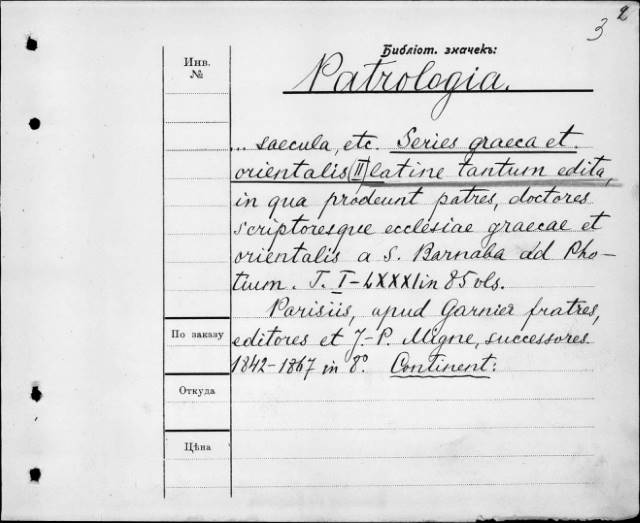 3 2
Библіот. значекъ:
Инв.
№
Patrologia.
... saecula, etc. Series graeca et
orientalis (II) latine tantum edita,
in qua prodeunt patres, doctores
scriptoresque ecclesiae graecae et
orientalis a S. Barnaba ad Pho-
tium. T. I–LXXXI in 85 vls.
Parisiis, apud Garnier fratres,
По заказу
editores et J.-P. Migne, successores.
1842–1867 in 8°. Continent:
Откуда
Цѣна